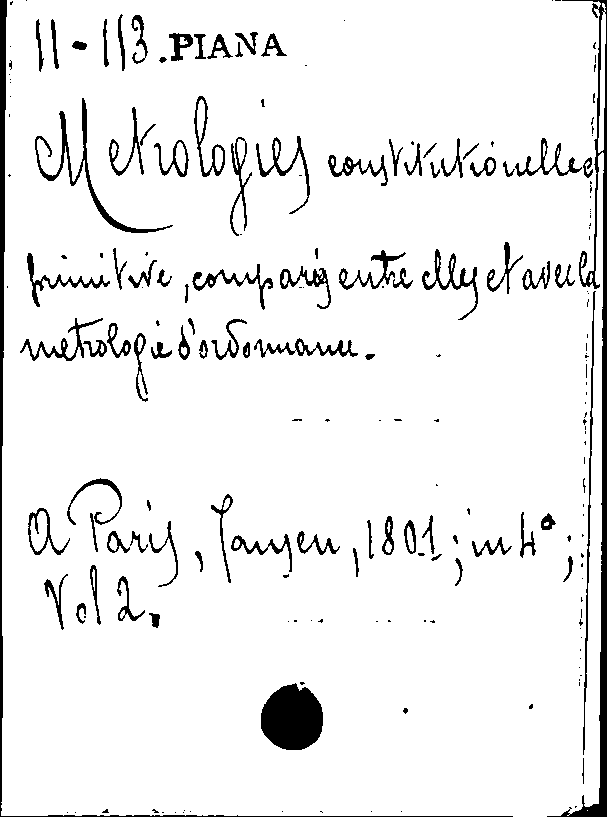 11-113.PIANA
Metrologies constitutionelle et
primitive, comparés entre elles et avec la
metrologie d'ordonnance.
A Paris, Jansen, 1801; in 4°;
Vol 2.